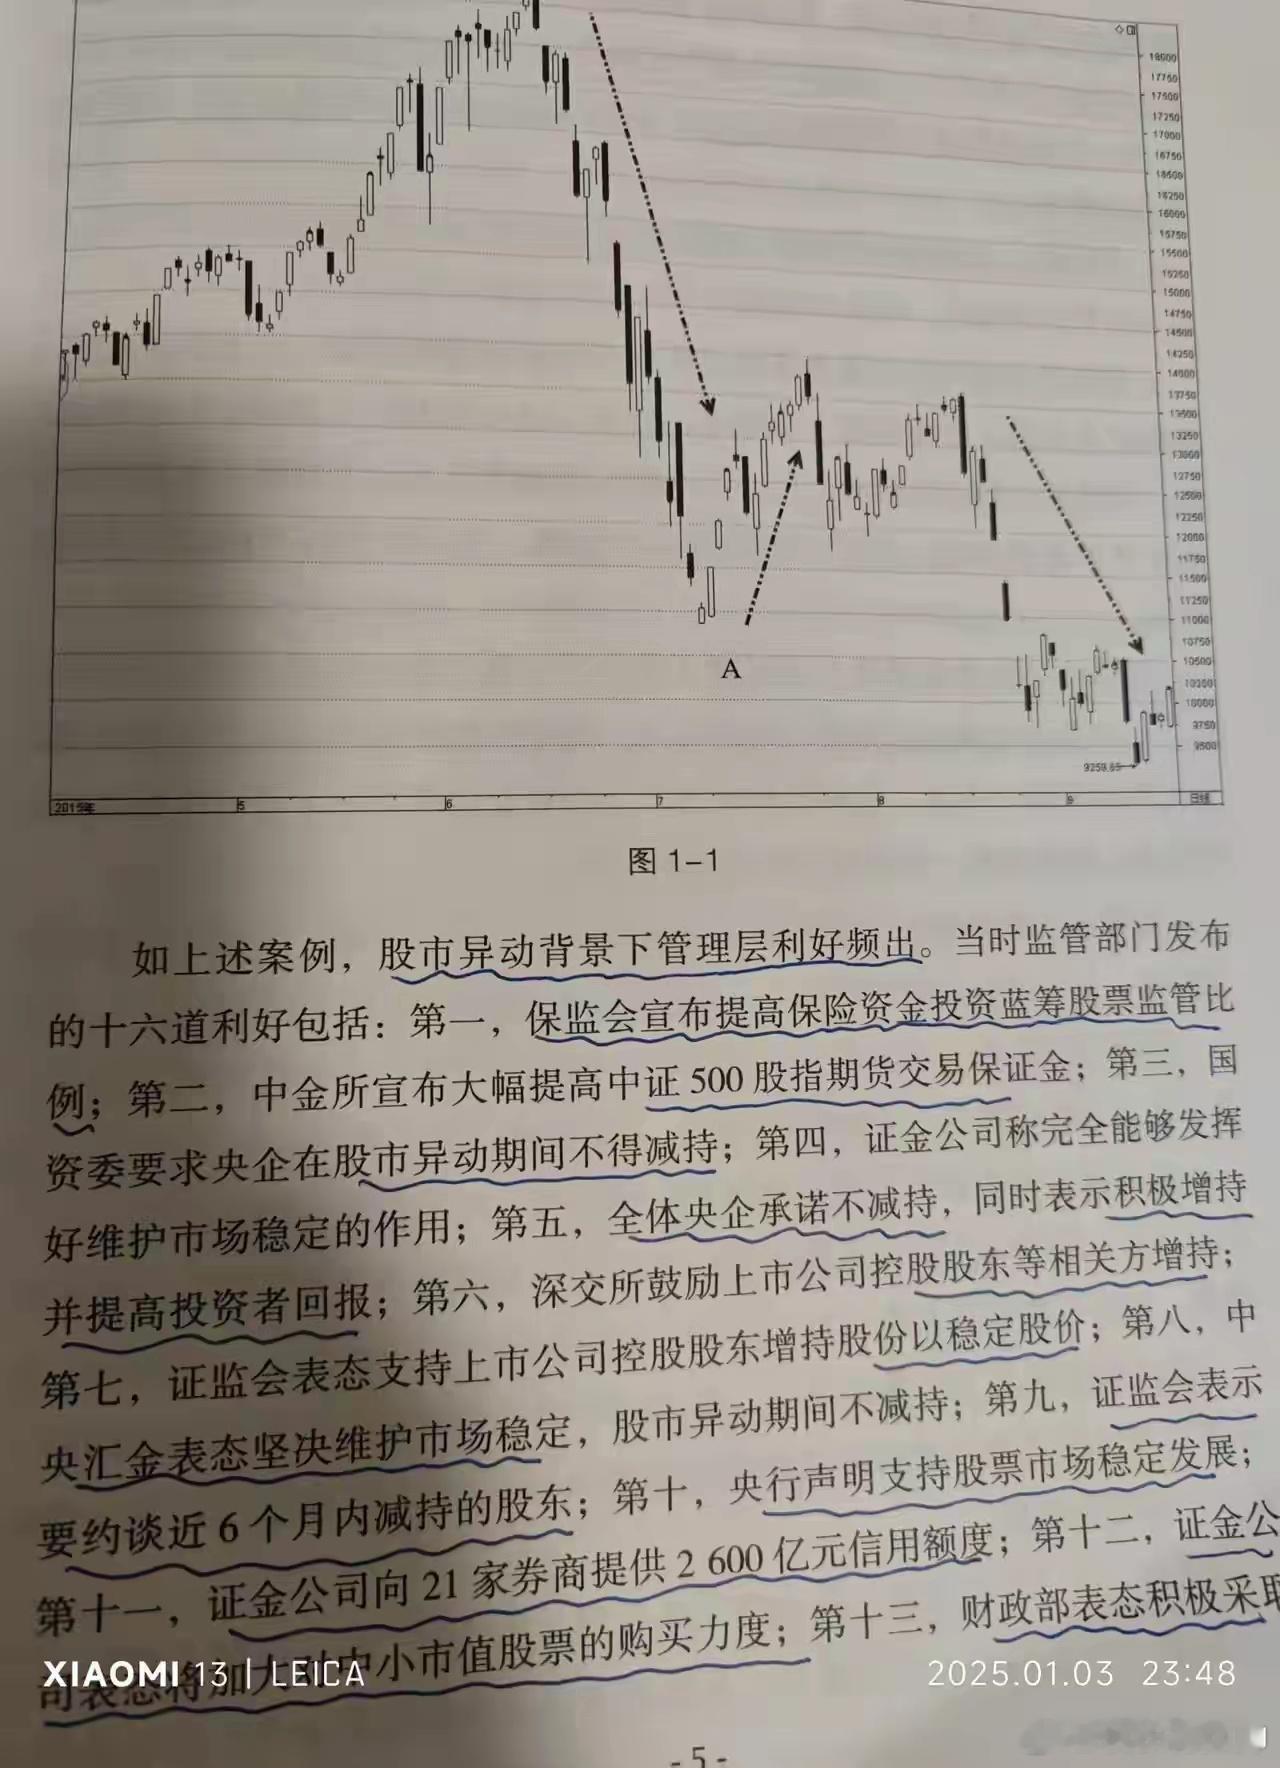 18000
17750
17500
17250
17000
16750
16500
16250
16000
15750
15500
15250
15000
14750
14500
14250
14000
13750
13500
13250
13000
12750
12500
12250
12000
11750
11500
11250
11000
10750
10500
10250
10000
9750
9500
A
9259.65
2015年 5 6 7 8 9 日线
图 1-1
如上述案例，股市异动背景下管理层利好频出。当时监管部门发布
的十六道利好包括：第一，保监会宣布提高保险资金投资蓝筹股票监管比
例；第二，中金所宣布大幅提高中证 500 股指期货交易保证金；第三，国
资委要求央企在股市异动期间不得减持；第四，证金公司称完全能够发挥
好维护市场稳定的作用；第五，全体央企承诺不减持，同时表示积极增持
并提高投资者回报；第六，深交所鼓励上市公司控股股东等相关方增持；
第七，证监会表态支持上市公司控股股东增持股份以稳定股价；第八，中
央汇金表态坚决维护市场稳定，股市异动期间不减持；第九，证监会表示
要约谈近 6 个月内减持的股东；第十，央行声明支持股票市场稳定发展；
第十一，证金公司向 21 家券商提供 2 600 亿元信用额度；第十二，证金公
司表态将加大对中小市值股票的购买力度；第十三，财政部表态积极采取
XIAOMI 13 | LEICA
2025.01.03 23:48
- 5 -